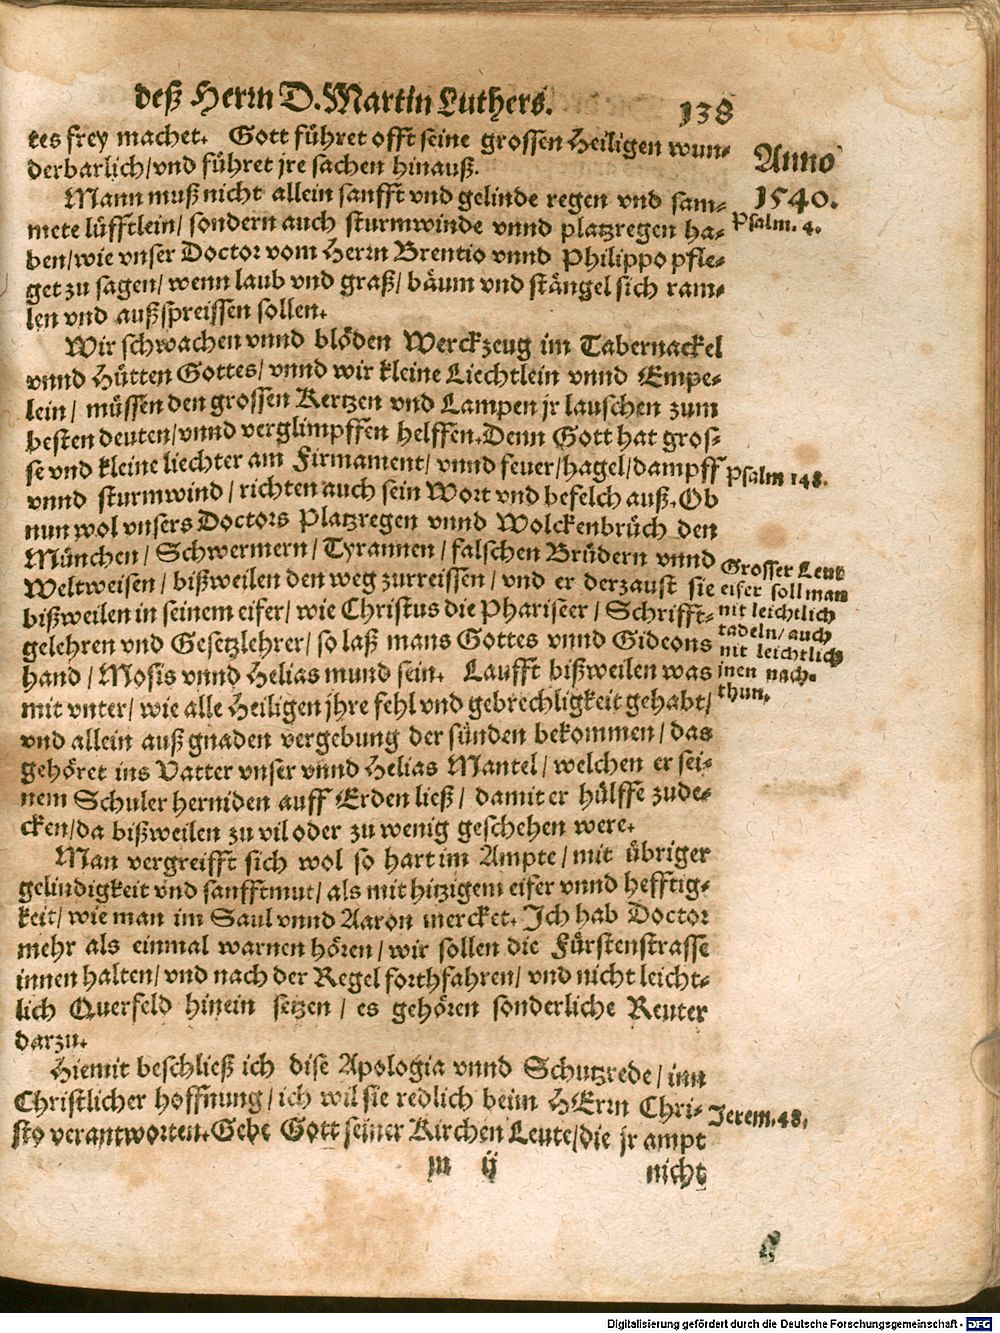 deß Herrn D. Martin Luthers. 138
tes frey machet. Gott führet offt seine grossen Heiligen wun-
derbarlich/vnd führet jre sachen hinauß.
Anno
1540.
Mann muß nicht allein sanfft vnd gelinde regen vnd sam-
mete lüfftlein/ sondern auch sturmwinde vnnd platzregen ha-
Psalm. 4.
ben/wie vnser Doctor vom Herrn Brentio vnnd Philippo pfle-
get zu sagen/ wenn laub vnd graß/ bäum vnd stängel sich ram-
len vnd außspreissen sollen.
Wir schwachen vnnd blöden Werckzeug im Tabernackel
vnnd Hütten Gottes/ vnnd wir kleine Liechtlein vnnd Empe-
lein/ müssen den grossen Kertzen vnd Lampen jr lauschen zum
besten deuten/vnnd verglimpffen helffen. Denn Gott hat gros-
se vnd kleine liechter am Firmament/ vnnd feuer/hagel/dampff
Psalm 148.
vnnd sturmwind/ richten auch sein Wort vnd befelch auß. Ob
nun wol vnsers Doctors Platzregen vnnd Wolckenbrüch den
München/ Schwermern/ Tyrannen/ falschen Brüdern vnnd
Weltweisen/ bißweilen den weg zurreissen/ vnd er derzaust sie
bißweilen in seinem eifer/ wie Christus die Phariseer/ Schrifft-
gelehren vnd Gesetzlehrer/ so laß mans Gottes vnnd Gideons
hand/ Mosis vnnd Helias mund sein. Laufft bißweilen was
mit vnter/ wie alle Heiligen jhre fehl vnd gebrechligkeit gehabt/
Grosser Leut
eifer soll man
nit leichtlich
tadeln/ auch
nit leichtlich
jnen nach-
thun.
vnd allein auß gnaden vergebung der sünden bekommen/ das
gehöret ins Vatter vnser vnnd Helias Mantel/ welchen er sei-
nem Schuler herniden auff Erden ließ/ damit er hülffe zude-
cken/da bißweilen zu vil oder zu wenig geschehen were.
Man vergreifft sich wol so hart im Ampte/ mit übriger
gelindigkeit vnd sanfftmut/ als mit hitzigem eifer vnnd hefftig-
keit/ wie man im Saul vnnd Aaron mercket. Ich hab Doctor
mehr als einmal warnen hören/ wir sollen die Fürstenstrasse
innen halten/ vnd nach der Regel forthfahren/ vnd nicht leicht-
lich Querfeld hinein setzen/ es gehören sonderliche Reuter
darzu.
Hiemit beschließ ich dise Apologia vnnd Schutzrede/ inn
Christlicher hoffnung/ ich wil sie redlich beim HErrn Chri-
Jerem. 48.
sto verantworten. Gebe Gott seiner Kirchen Leute/die jr ampt
m ij nicht
Digitalisierung gefördert durch die Deutsche Forschungsgemeinschaft - DFG